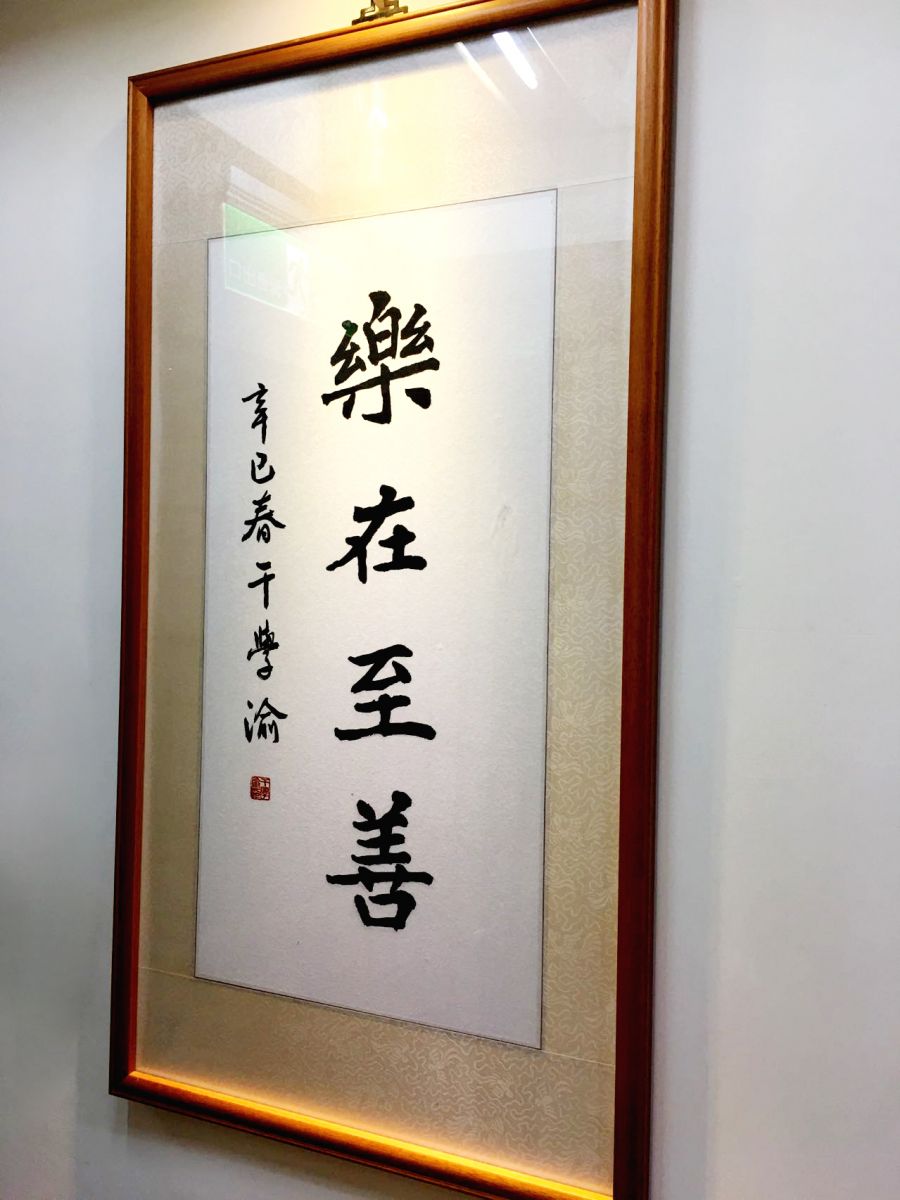 樂在至善
辛巳春 干學渝